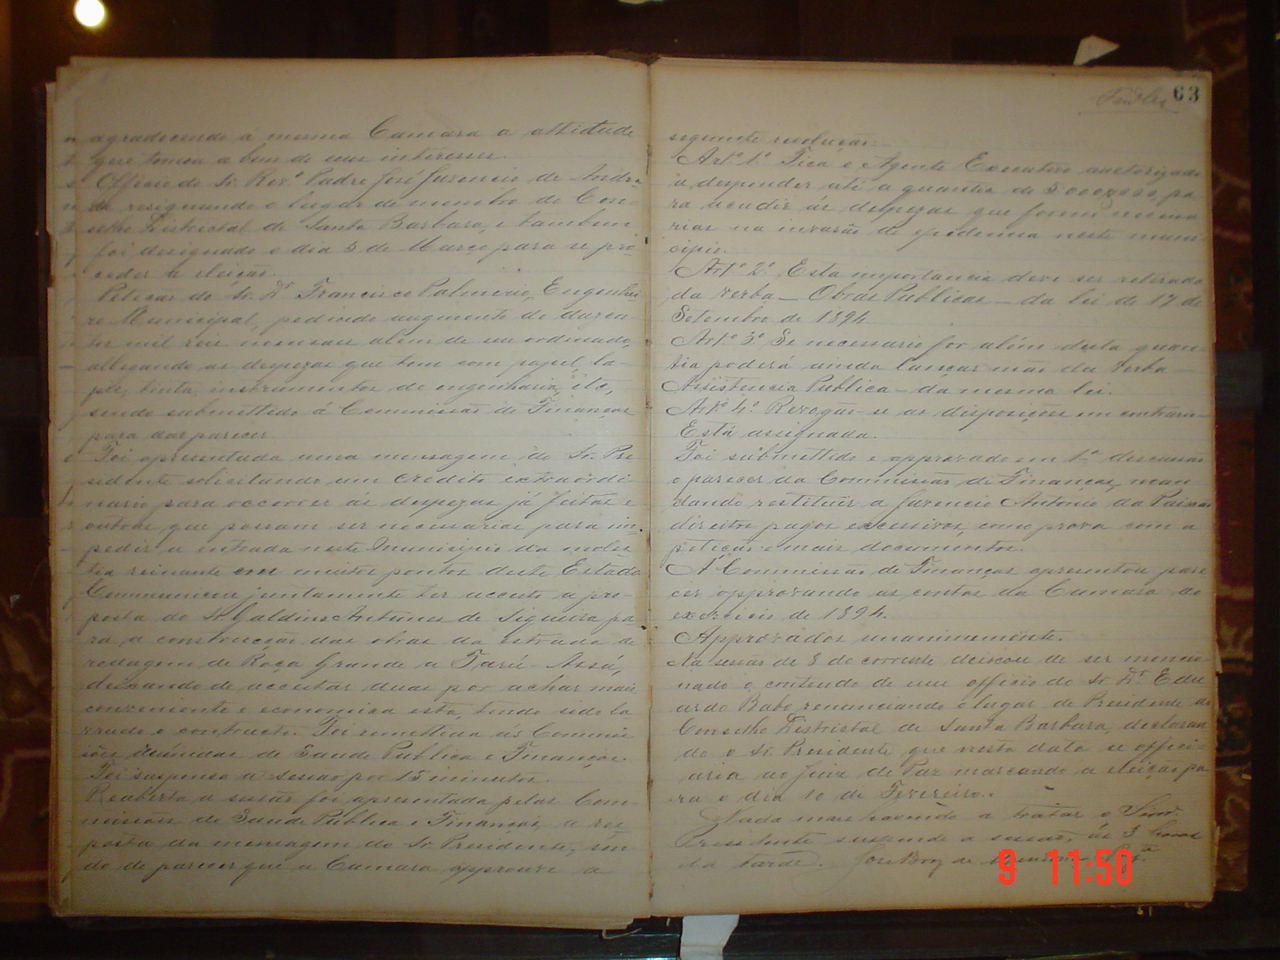 agradecendo a mesma Camara a attitude
que tomou a bem de seus interesses.
Officio do Sr. Revº Padre José Juvencio de Andra-
de resignando o lugar de membro do Con-
selho Districtal de Santa Barbara, e tambem
foi designado o dia 3 de Março para se pro-
ceder a eleição.
Petição do Sr. Dr Francisco Palmerio, Engenhei
ro Municipal, pedindo augmento de duzen-
tos mil reis mensaes além de seu ordenado,
allegando as despezas que tem com papel, la-
pis, tinta, instrumentos de engenharia, etc,
sendo submettido á Commissão de Finanças
para dar parecer.
Foi apresentada uma mensagem do Sr. Pre
sidente solicitando um credito extraordi-
nario para occorrer ás despezas já feitas e
outras que possam ser necessarias para im-
pedir a entrada neste Municipio da moles
tia reinante em muitos pontos deste Estado
Communicou juntamente ter acceito a pro-
posta do Sr. Galdino Antunes de Siqueira pa
ra a construcção das obras da estrada de
rodagem de Roça Grande a Tarú-Assú,
deixando de acceitar duas por achar mais
conveniente e economica esta, tendo sido la
vrado o contracto. Foi remettida ás Commis
sões reunidas de Saude Publica e Finanças.
Foi suspensa a sessão por 15 minutos.
Reaberta a sessão foi apresentada pelas Com-
missões de Saude Publica e Finanças, a res
posta da mensagem do Sr. Presidente, sen-
do de parecer que a Camara approve a
63
seguinte resolução:-
Artº 1º Fica o Agente Executivo auctorizado
a despender até a quantia de 5:000$000, pa
ra acudir ás despezas que forem necessa
rias na invasão de epidemia neste muni
cipio.
Artº 2º Esta importancia deve ser retirada
da verba - Obras Publicas - da lei de 17 de
Setembro de 1894
Artº 3º Se necessario for além desta quan-
tia poderá ainda lançar mão da verba -
Assistencia Publica - da mesma lei.
Artº 4º Revogão-se as disposições em contrario
Está assignada.
Foi submettido e approvado em 1ª discussão
o parecer da Commissão de Finanças, man
dando restituir a Juvencio Antonio da Paixão
direitos pagos excessivos, como prova com a
petição e mais documentos.
A Commissão de Finanças apresentou pare
cer approvando as contas da Camara do
exercicio de 1894.
Approvados unanimemente.
Na sessão de 3 do corrente deixou de ser mencio
nado o contendo de um officio do Sr. Dr. Edu
ardo Babo renunciando o lugar de Presidente do
Conselho Districtal de Santa Barbara, declaran
do o Sr. Presidente que nesta data se offici-
aria ao Juiz de Paz marcando a eleição pa
ra o dia 10 de Fevereiro.
Nada mais havendo a tratar o Snr.
Presidente suspende a sessão, ás 3 horas
da tarde.
9 11:50